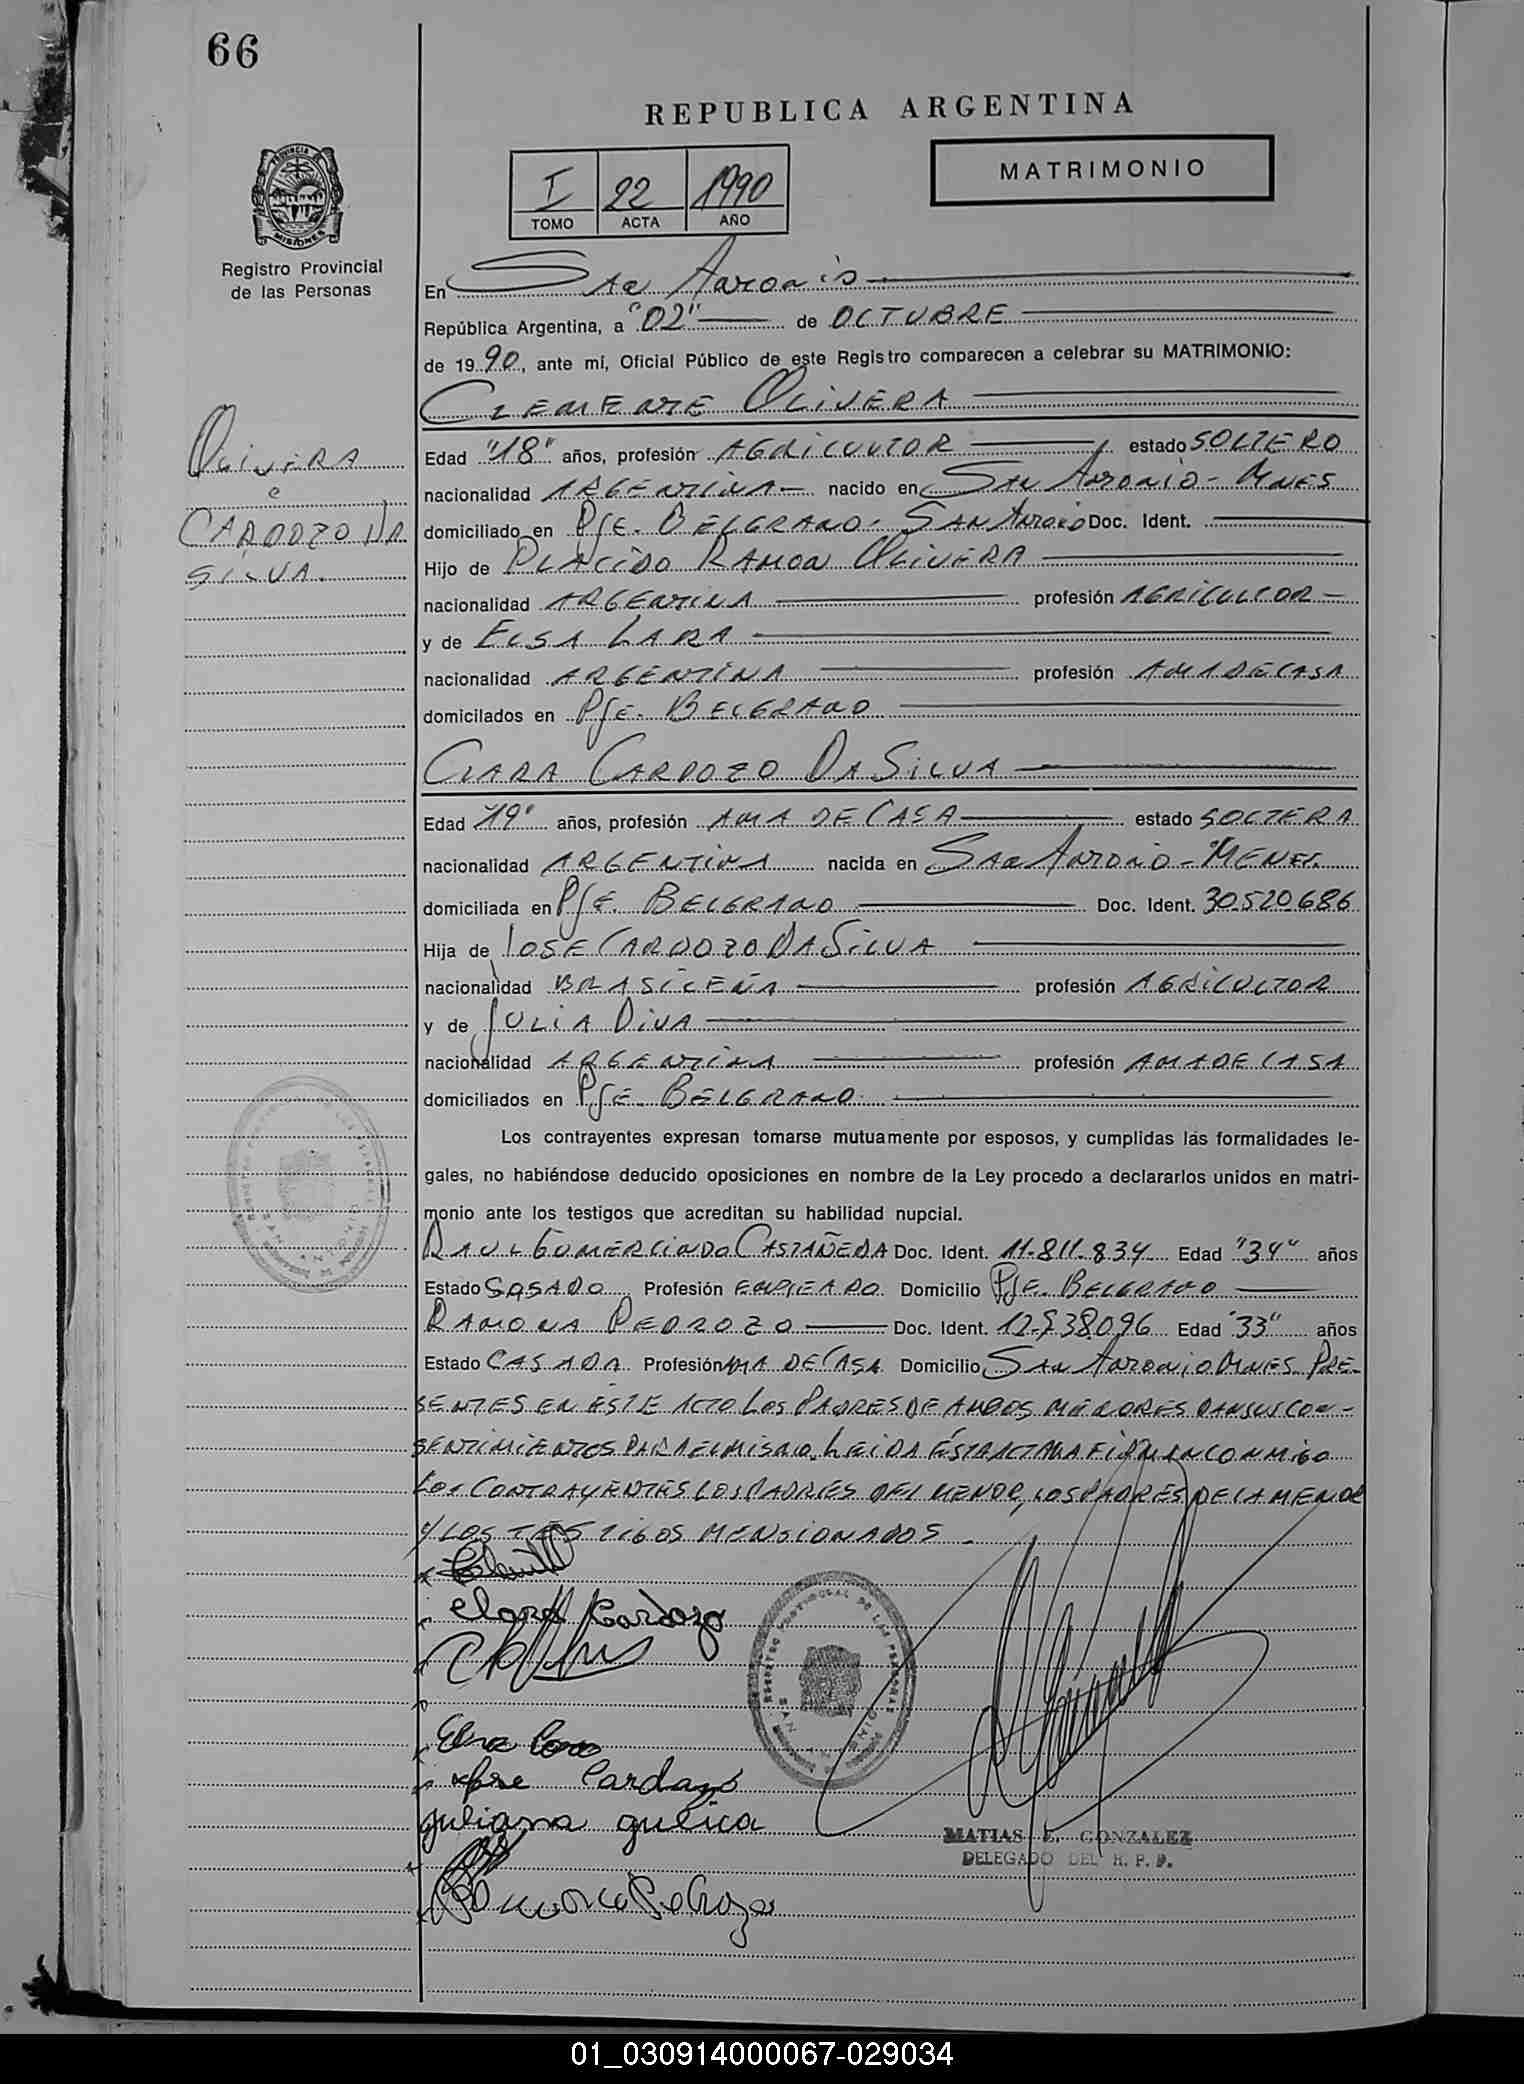 66
REPUBLICA ARGENTINA
MATRIMONIO
I 22 1990
TOMO ACTA AÑO
PROVINCIA DE MISIONES
Registro Provincial
de las Personas
En San Antonio
República Argentina, a "02" de OCTUBRE
de 1990, ante mí, Oficial Público de este Registro comparecen a celebrar su MATRIMONIO:
CLEMENTE OLIVERA
OLIVERA
c
CARDOZO DA
SILVA.
Edad "18" años, profesión AGRICULTOR estado SOLTERO
nacionalidad ARGENTINA nacido en SAN ANTONIO - MNES
domiciliado en PJE. BELGRANO - SAN ANTONIO Doc. Ident.
Hijo de PLACIDO RAMON OLIVERA
nacionalidad ARGENTINA profesión AGRICULTOR
y de ELSA LARA
nacionalidad ARGENTINA profesión AMA DE CASA
domicilados en PJE. BELGRANO
CLARA CARDOZO DA SILVA
Edad "19" años, profesión AMA DE CASA estado SOLTERA
nacionalidad ARGENTINA nacida en SAN ANTONIO - MENES.
domiciliada en PJE. BELGRANO Doc. Ident. 30.520.686
Hija de JOSE CARDOZO DA SILVA
nacionalidad BRASILEÑA profesión AGRICULTOR
y de JULIA DIVA
nacionalidad ARGENTINA profesión AMA DE CASA
domiciliados en PJE. BELGRANO
Los contrayentes expresan tomarse mutuamente por esposos, y cumplidas las formalidades le-
gales, no habiéndose deducido oposiciones en nombre de la Ley procedo a declararlos unidos en matri-
monio ante los testigos que acreditan su habilidad nupcial.
RAUL GUMERCINDO CASTAÑEDA Doc. Ident. 11.811.834 Edad "34" años
Estado CASADO Profesión EMPLEADO Domicilio PJE. BELGRANO
RAMONA PEDROZO Doc. Ident. 12.538.096 Edad "33" años
Estado CASADA Profesión AMA DE CASA Domicilio SAN ANTONIO MNES. PRE-
SENTES EN ESTE ACTO LOS PADRES DE AMBOS MENORES DAN SUS CON-
SENTIMIENTOS PARA EL MISMO. LEIDA ESTA ACTA LA FIRMAN CONMIGO
LOS CONTRAYENTES LOS PADRES DEL MENOR, LOS PADRES DE LA MENOR
Y LOS TESTIGOS MENSIONADOS.
clara Cardozo
REGISTRO PROVINCIAL DE LAS PERSONAS
Elsa Lara
Jose Cardozo
juliana gulica
MATIAS E. GONZALEZ
DELEGADO DEL R. P. P.
Ramona Pedrozo
01_030914000067-029034